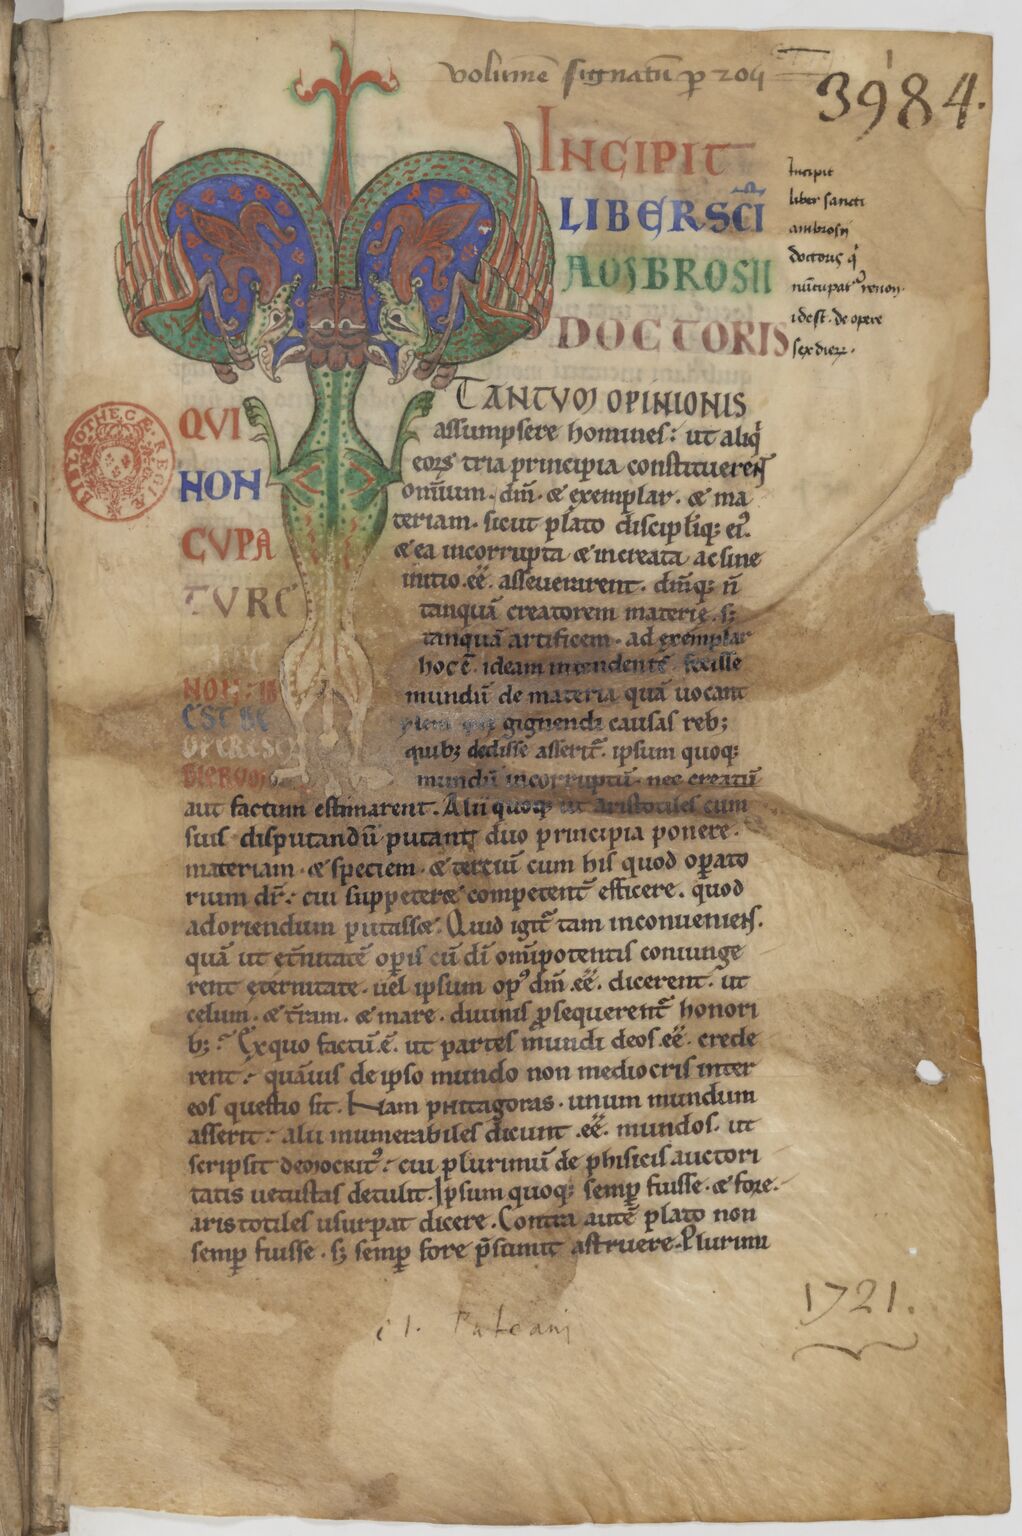 volumē signatū ꝑ 204
3984.
INCIPIT
LIBER SCĪ
AMBROSII
DOCTORIS
QUI
NON
CUPA
TUR
NON
EST DE
OPERE SEX
DIERUM
Incipit
liber sancti
ambrosij
doctoris q̇
nūcupat᷑ renon
id est. de opere
sex dierꝝ.
BIBLIOTHECÆ REGIÆ
TANTUM OPINIONIS
assumpsere homines; ut aliq̇
eorꝫ tria principia constituerent
omīum. dm̄. & exemplar. & ma
teriam. sicut plato discipliq; ei᷒.
& ea incorrupta & increata ac sine
initio .eē. asseverarent. dm̄q; n̄
tanquā creatorem materie. s;
tanquā artificem. ad exemplar
hoc ē. ideam intendentē. fecisse
mundū de materia quā uocant
gignendi causas reb;
quib; dedisse asserit̄. ipsum quoq;
mundū incorruptū. nec creatū
aut factum estimarent. Alii quoq; ut aristotiles cum
suis disputandū putant duo principia ponere.
materiam. & speciem. & tertiū cum his quod oꝑato
rium dr̄; cui suppeteret competent̄ efficere. quod
adoriendum putasset. Quid igit̄ tam inconueniens.
quā ut et̄nitatē oꝑis cū dī omīpotentis coniunge
rent ęternitate. uel ipsum op᷒ dm̄ .eē. dicerent. ut
celum. & t̄ram. & mare. diuinis ꝓsequerent̄ honori
b;. Ex quo factū .ē. ut partes mundi deos .eē. crede
rent; quāuis de ipso mundo non mediocris inter
eos questio sit. Nam phitagoras. unum mundum
asserit; alii innumerabiles dicunt .eē. mundos. ut
scripsit democrit᷒; cui plurimū de phisicis auctori
tatis uetustas detulit. Ipsum quoq; semꝑ fuisse. & fore.
aristotiles usurpat dicere. Contra autē plato non
semꝑ fuisse. s; semꝑ fore p̄sumit astruere. Plurimi
cl. Puteani
1721.